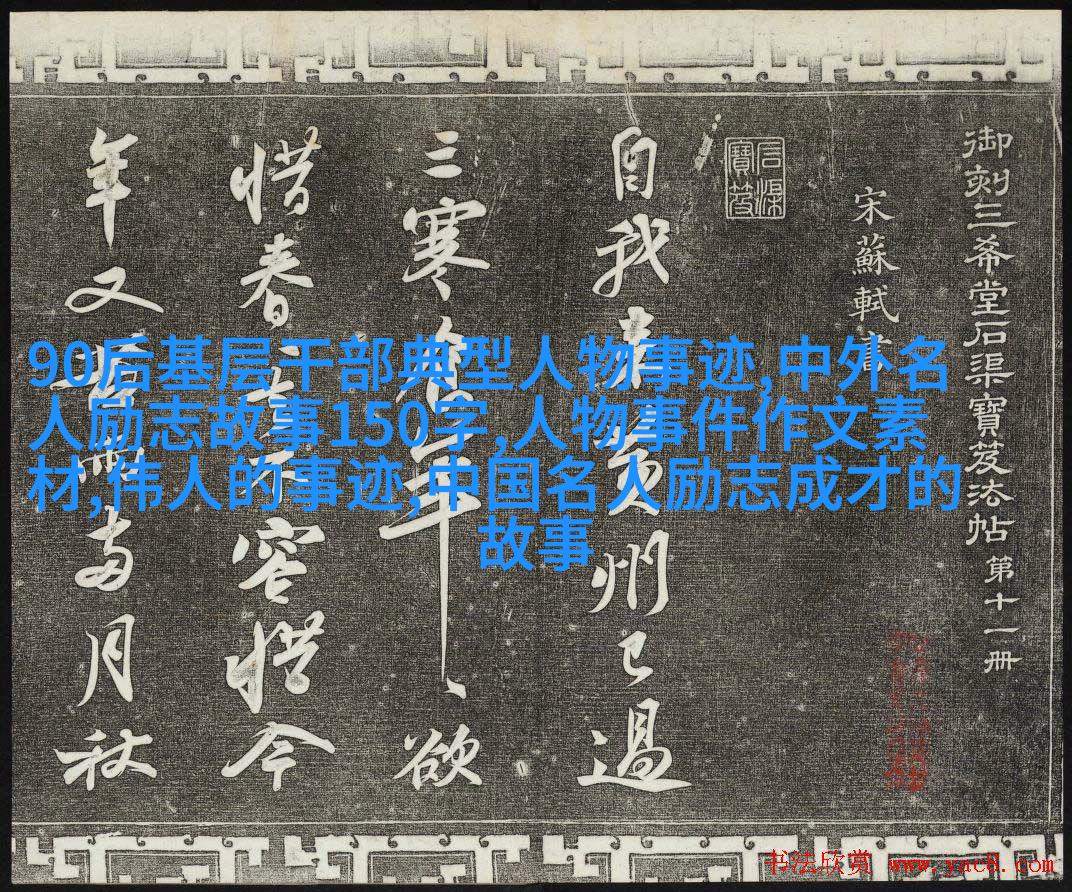 御刻三希堂石渠寶笈法帖 第十一冊
宋蘇軾書
石渠寶笈
自我來黃州已過
三寒食年、欲
惜春、去不容惜今
年又苦雨兩月秋
90后基层干部典型人物事迹,中外名
人励志故事150字,人物事件作文素
材,伟人的事迹,中国名人励志成才的
故事
书法欣赏 www.yac8.com